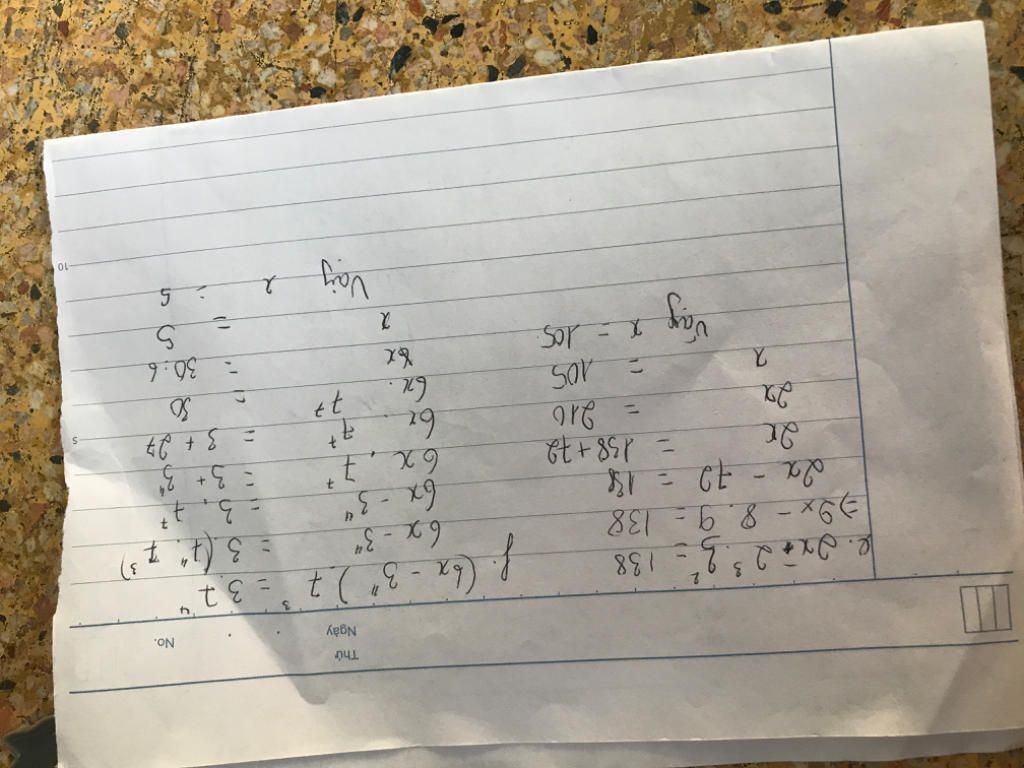 Thứ
Ngày
No.
e. 2x - 2³. 3² = 138
=> 2x - 8 . 9 = 138
2x - 72 = 138
2x = 138 + 72
2x = 210
x = 105
Vậy x = 105
f. (6x - 3⁴) . 7³ = 3 7⁴
6x - 3⁴ = 3 . (7⁴ . 7³)
6x - 3⁴ = 3 . 7⁷
6x . 7⁷ = 3 + 3⁴
6x . 7⁷ = 3 + 27
6x . 7⁷ = 30
6x = 30 : 6
x = 5
Vậy x = 5
5
10